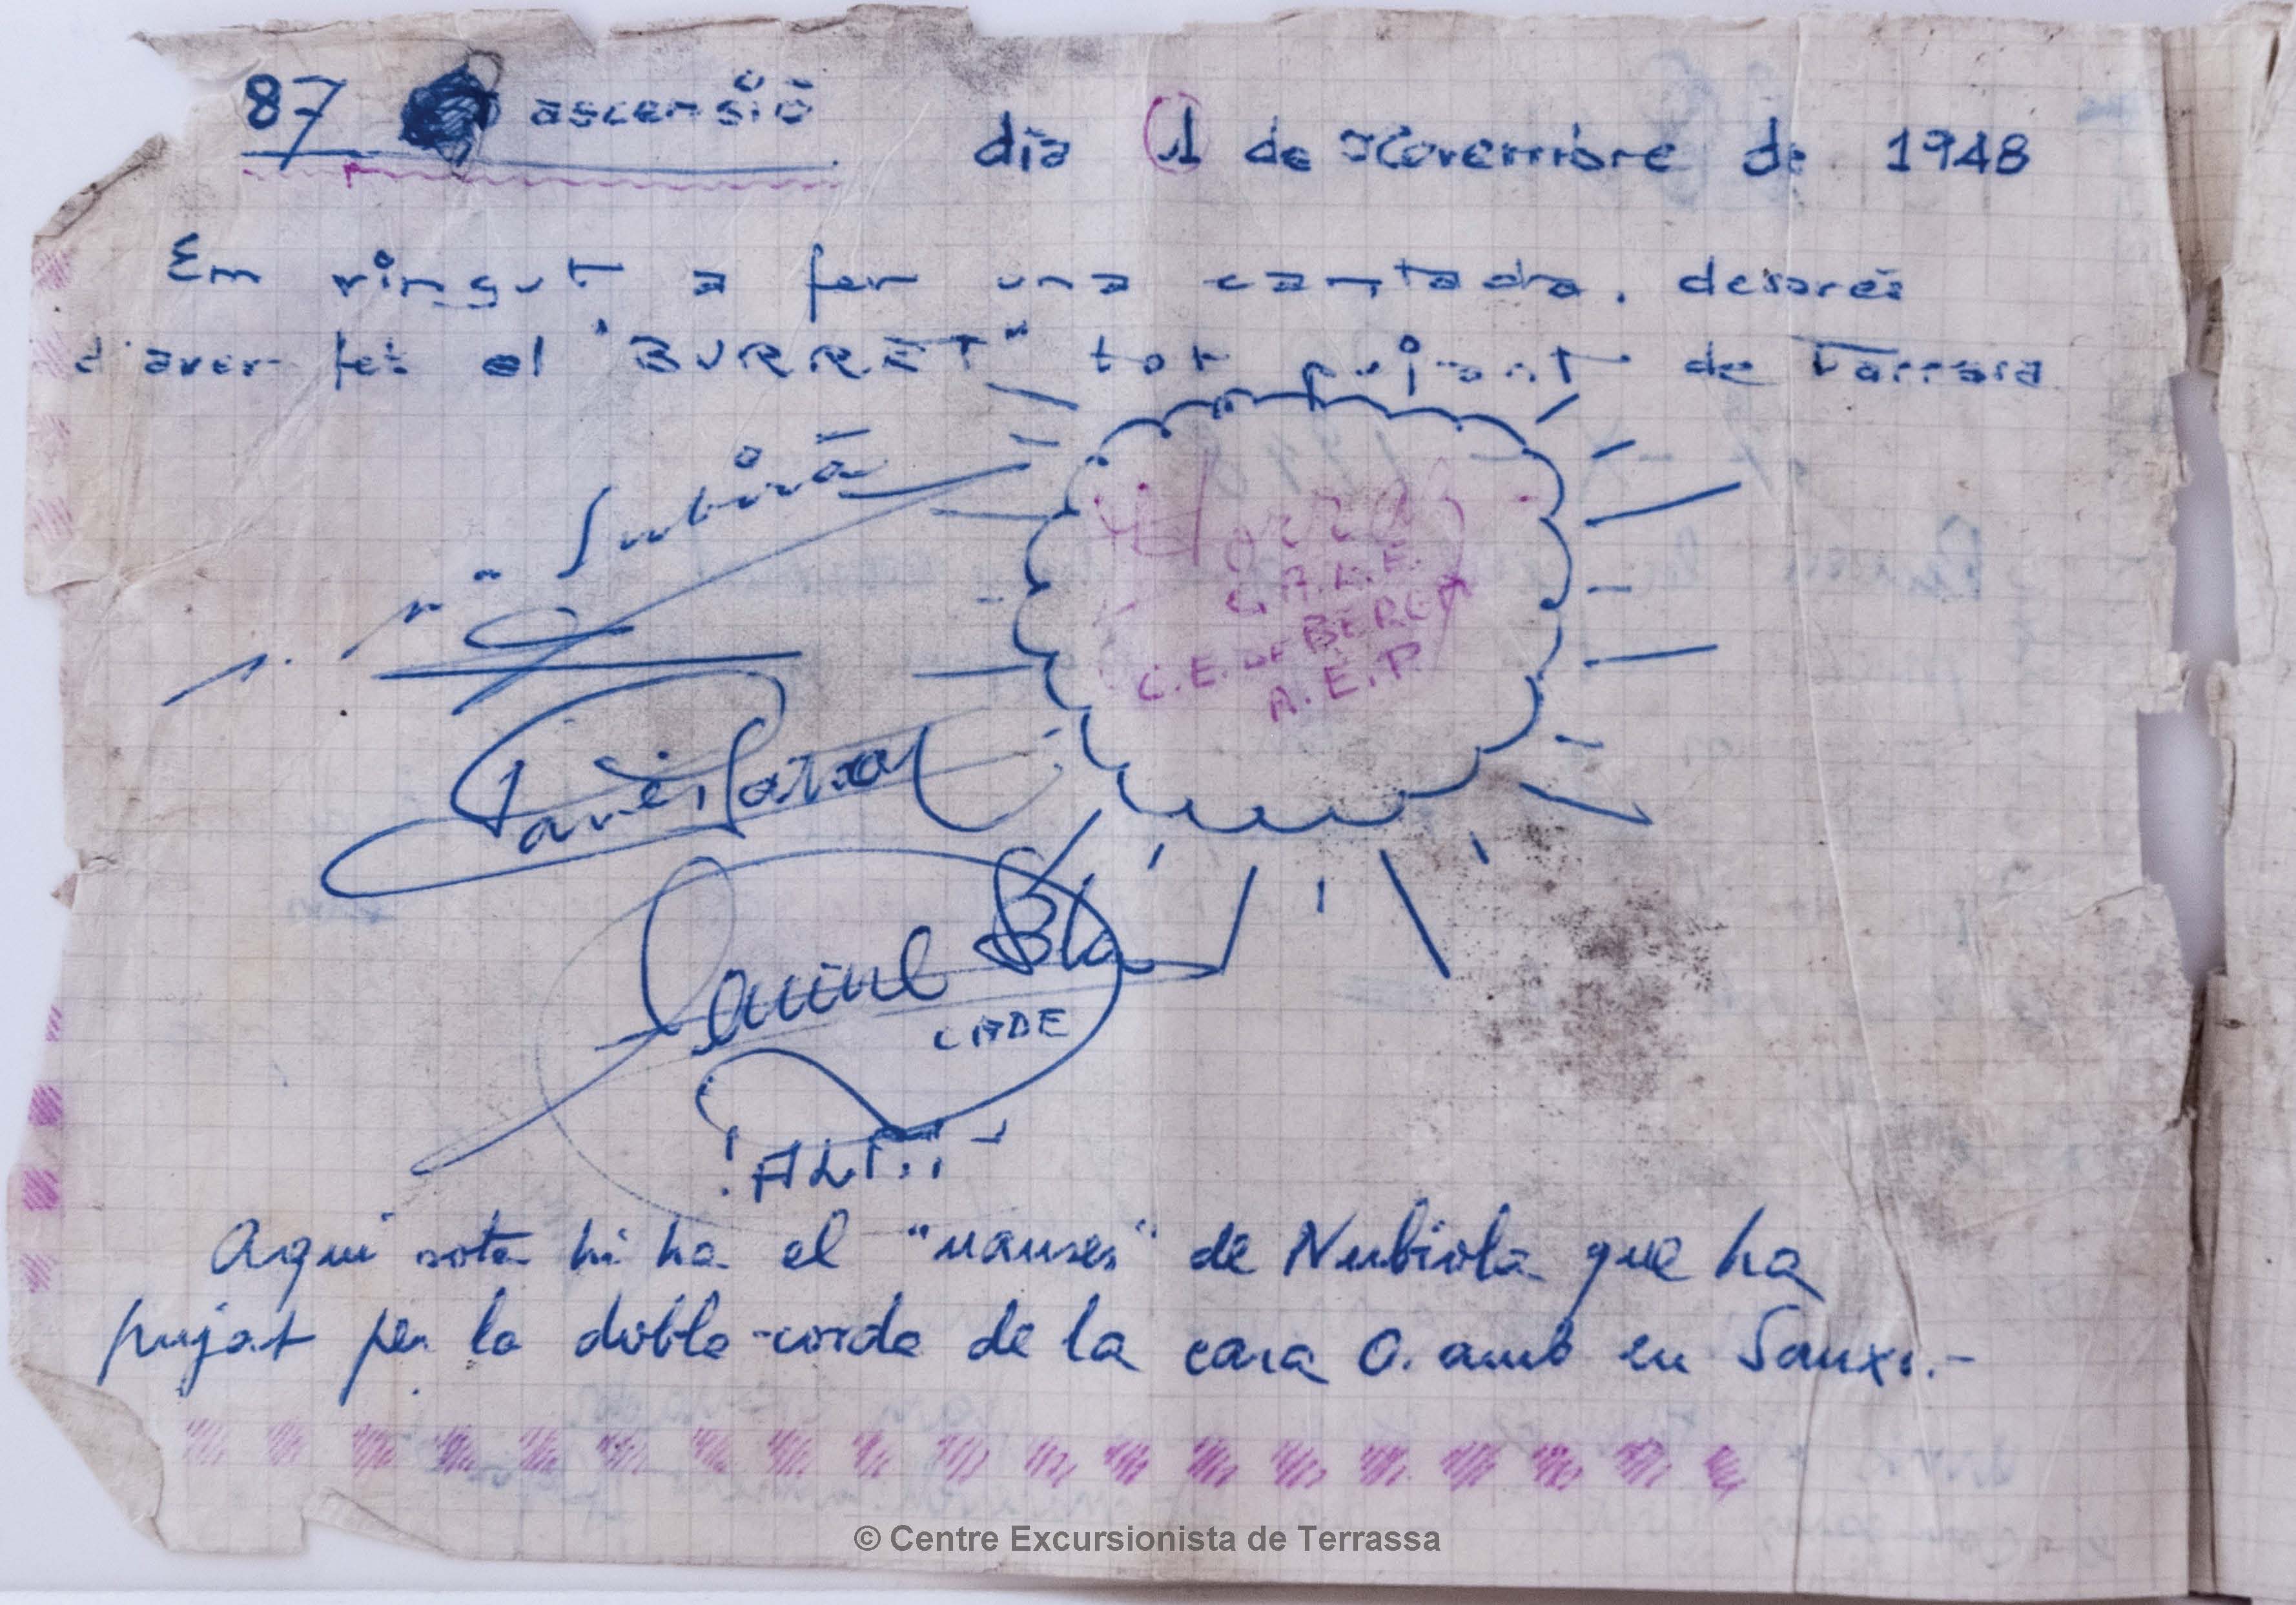 87 ascensió
dia 1 de Novembre de 1948
Em vingut a fer una cantada, després
d'aver fet el "BURRET" tot pujant de Tarrasa
Subirà
G.A.L.E.
C.E. DE BERGA
A.E.P.
CADE
Aqui sota hi ha el de Nubiola que ha
pujat per la doble-corda de la cara O. amb en Sanxo.-
© Centre Excursionista de Terrassa